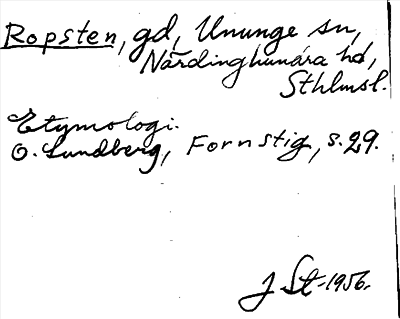 Ropsten, gd, Ununge sn,
Närdinghundra hd,
Sthlmsl.
Etymologi.
O. Lundberg, Fornstig, s. 29.
J St 1956.